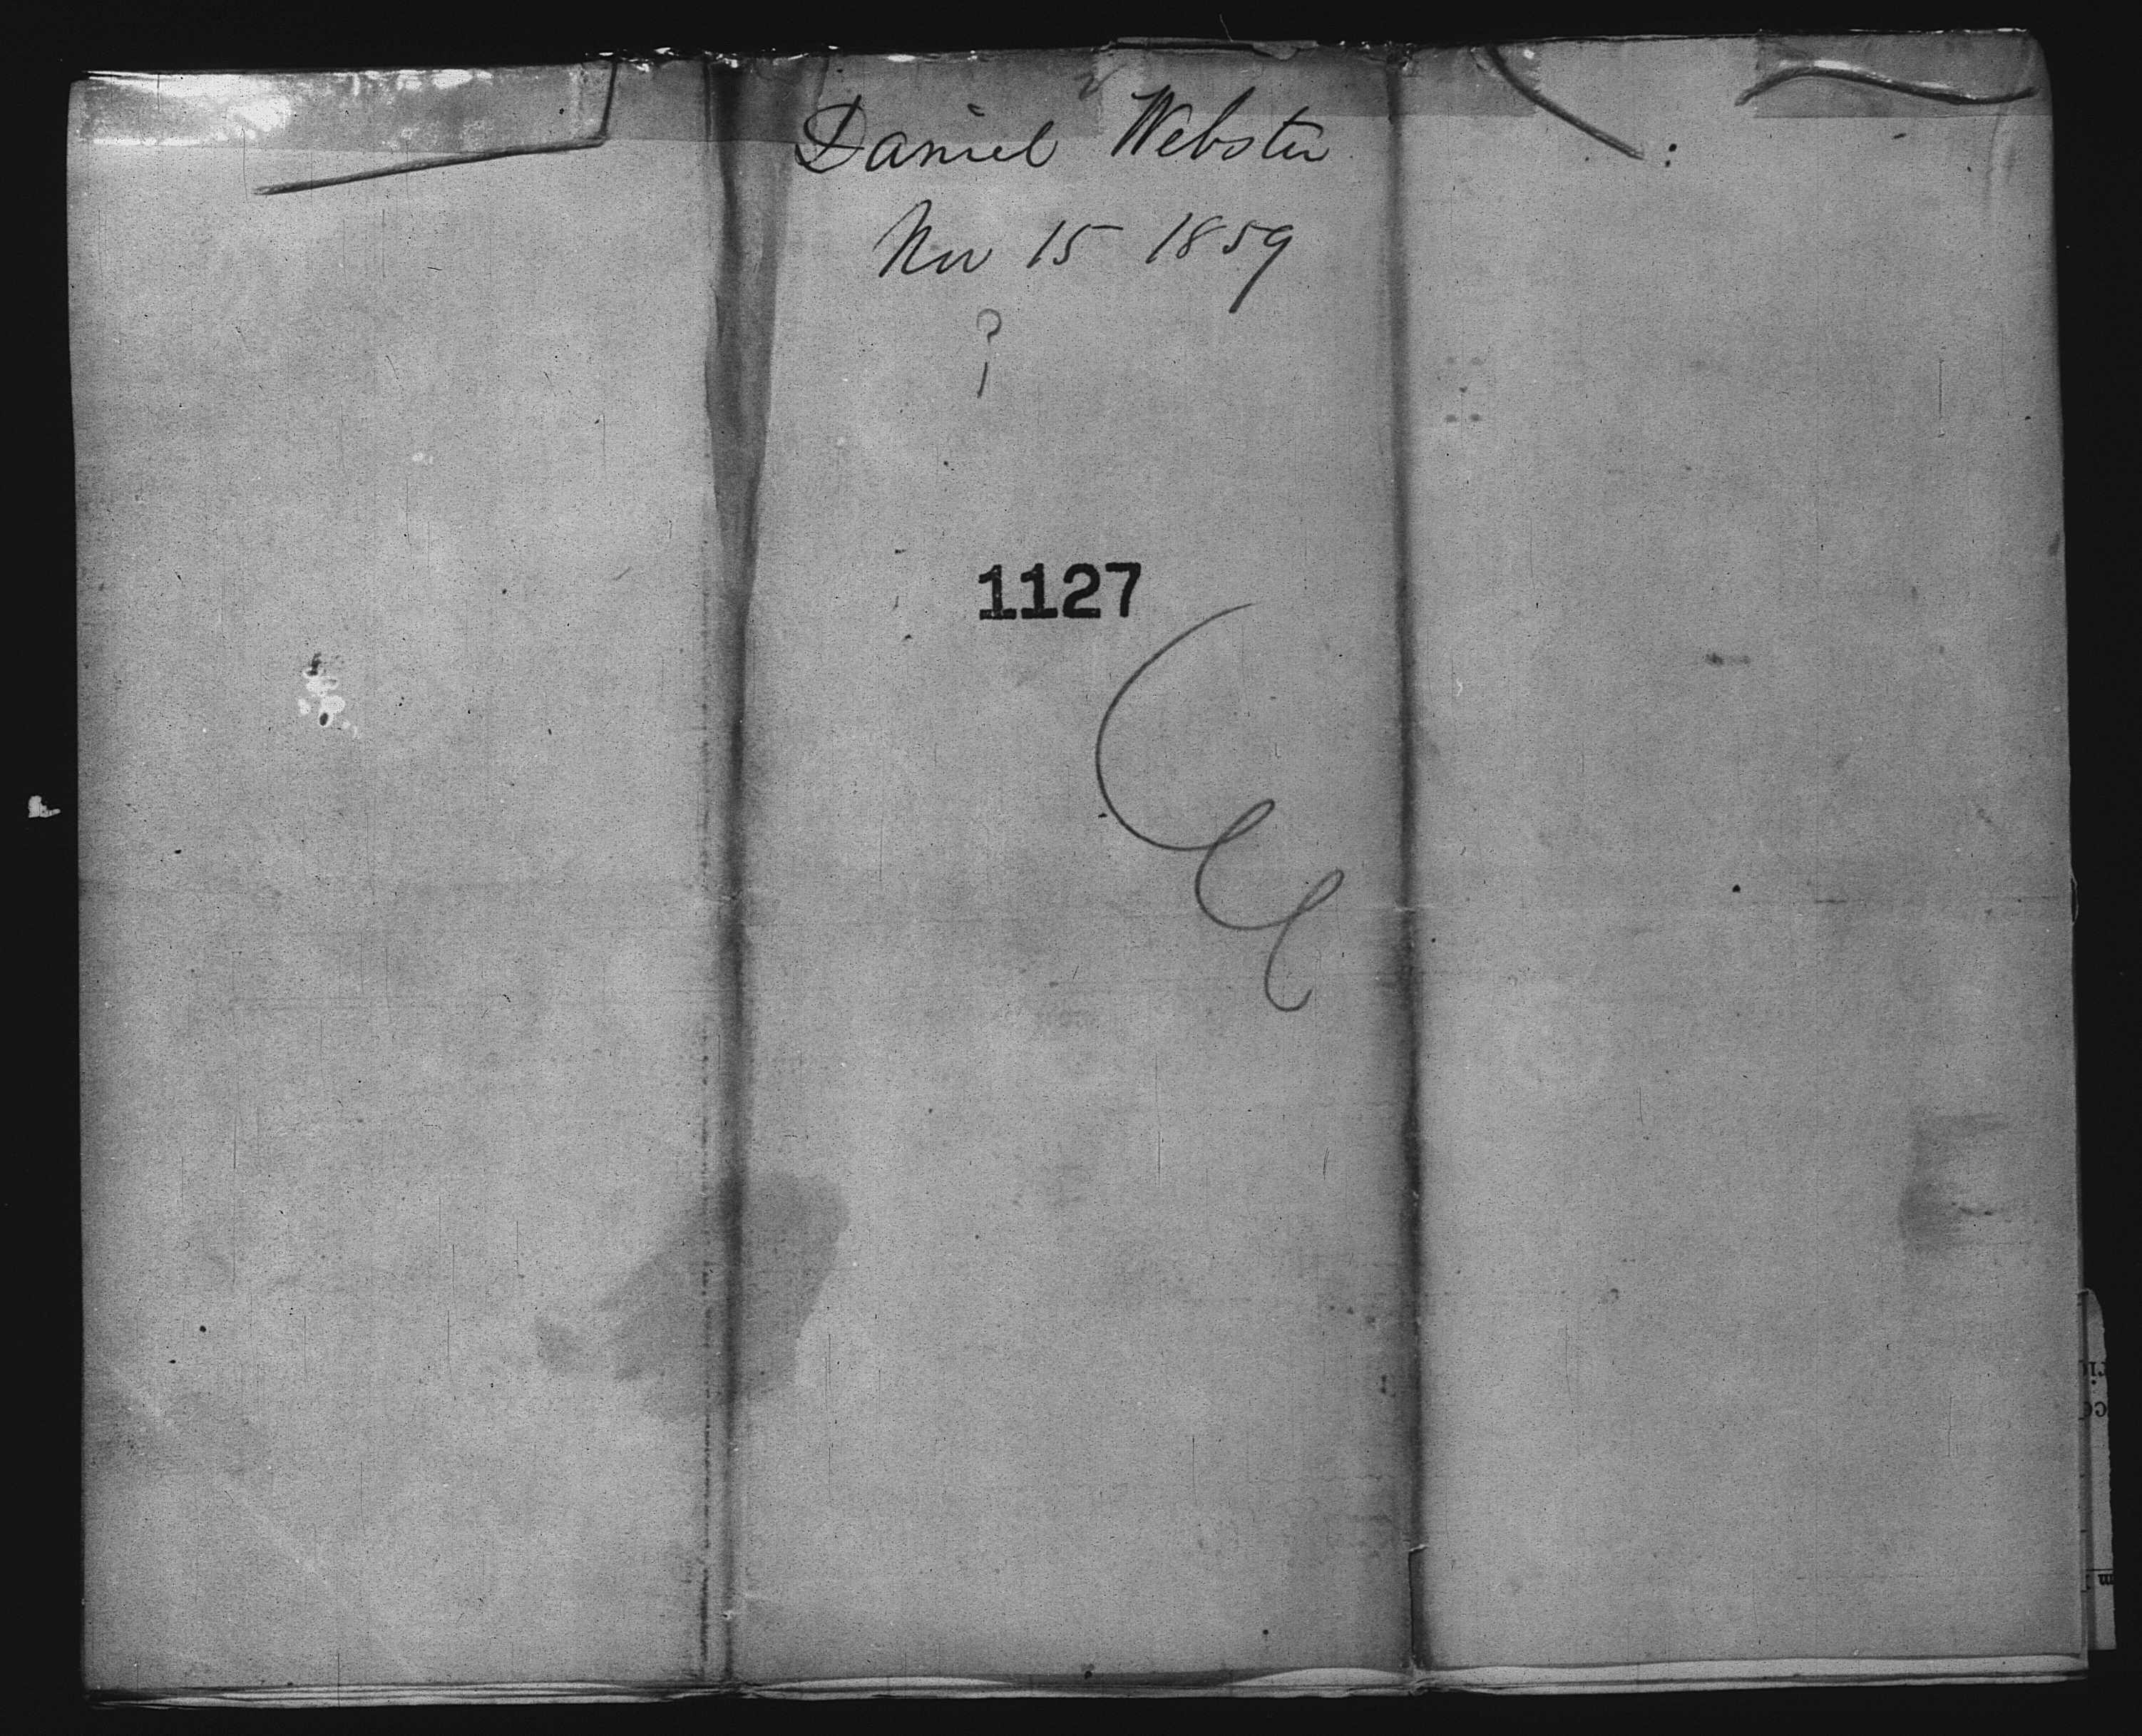 Daniel Webster
Nov 15 1859
?
1127